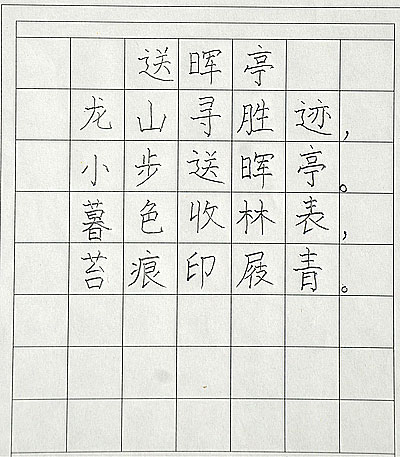 送晖亭
龙山寻胜迹,
小步送晖亭。
暮色收林表,
苔痕印屐青。